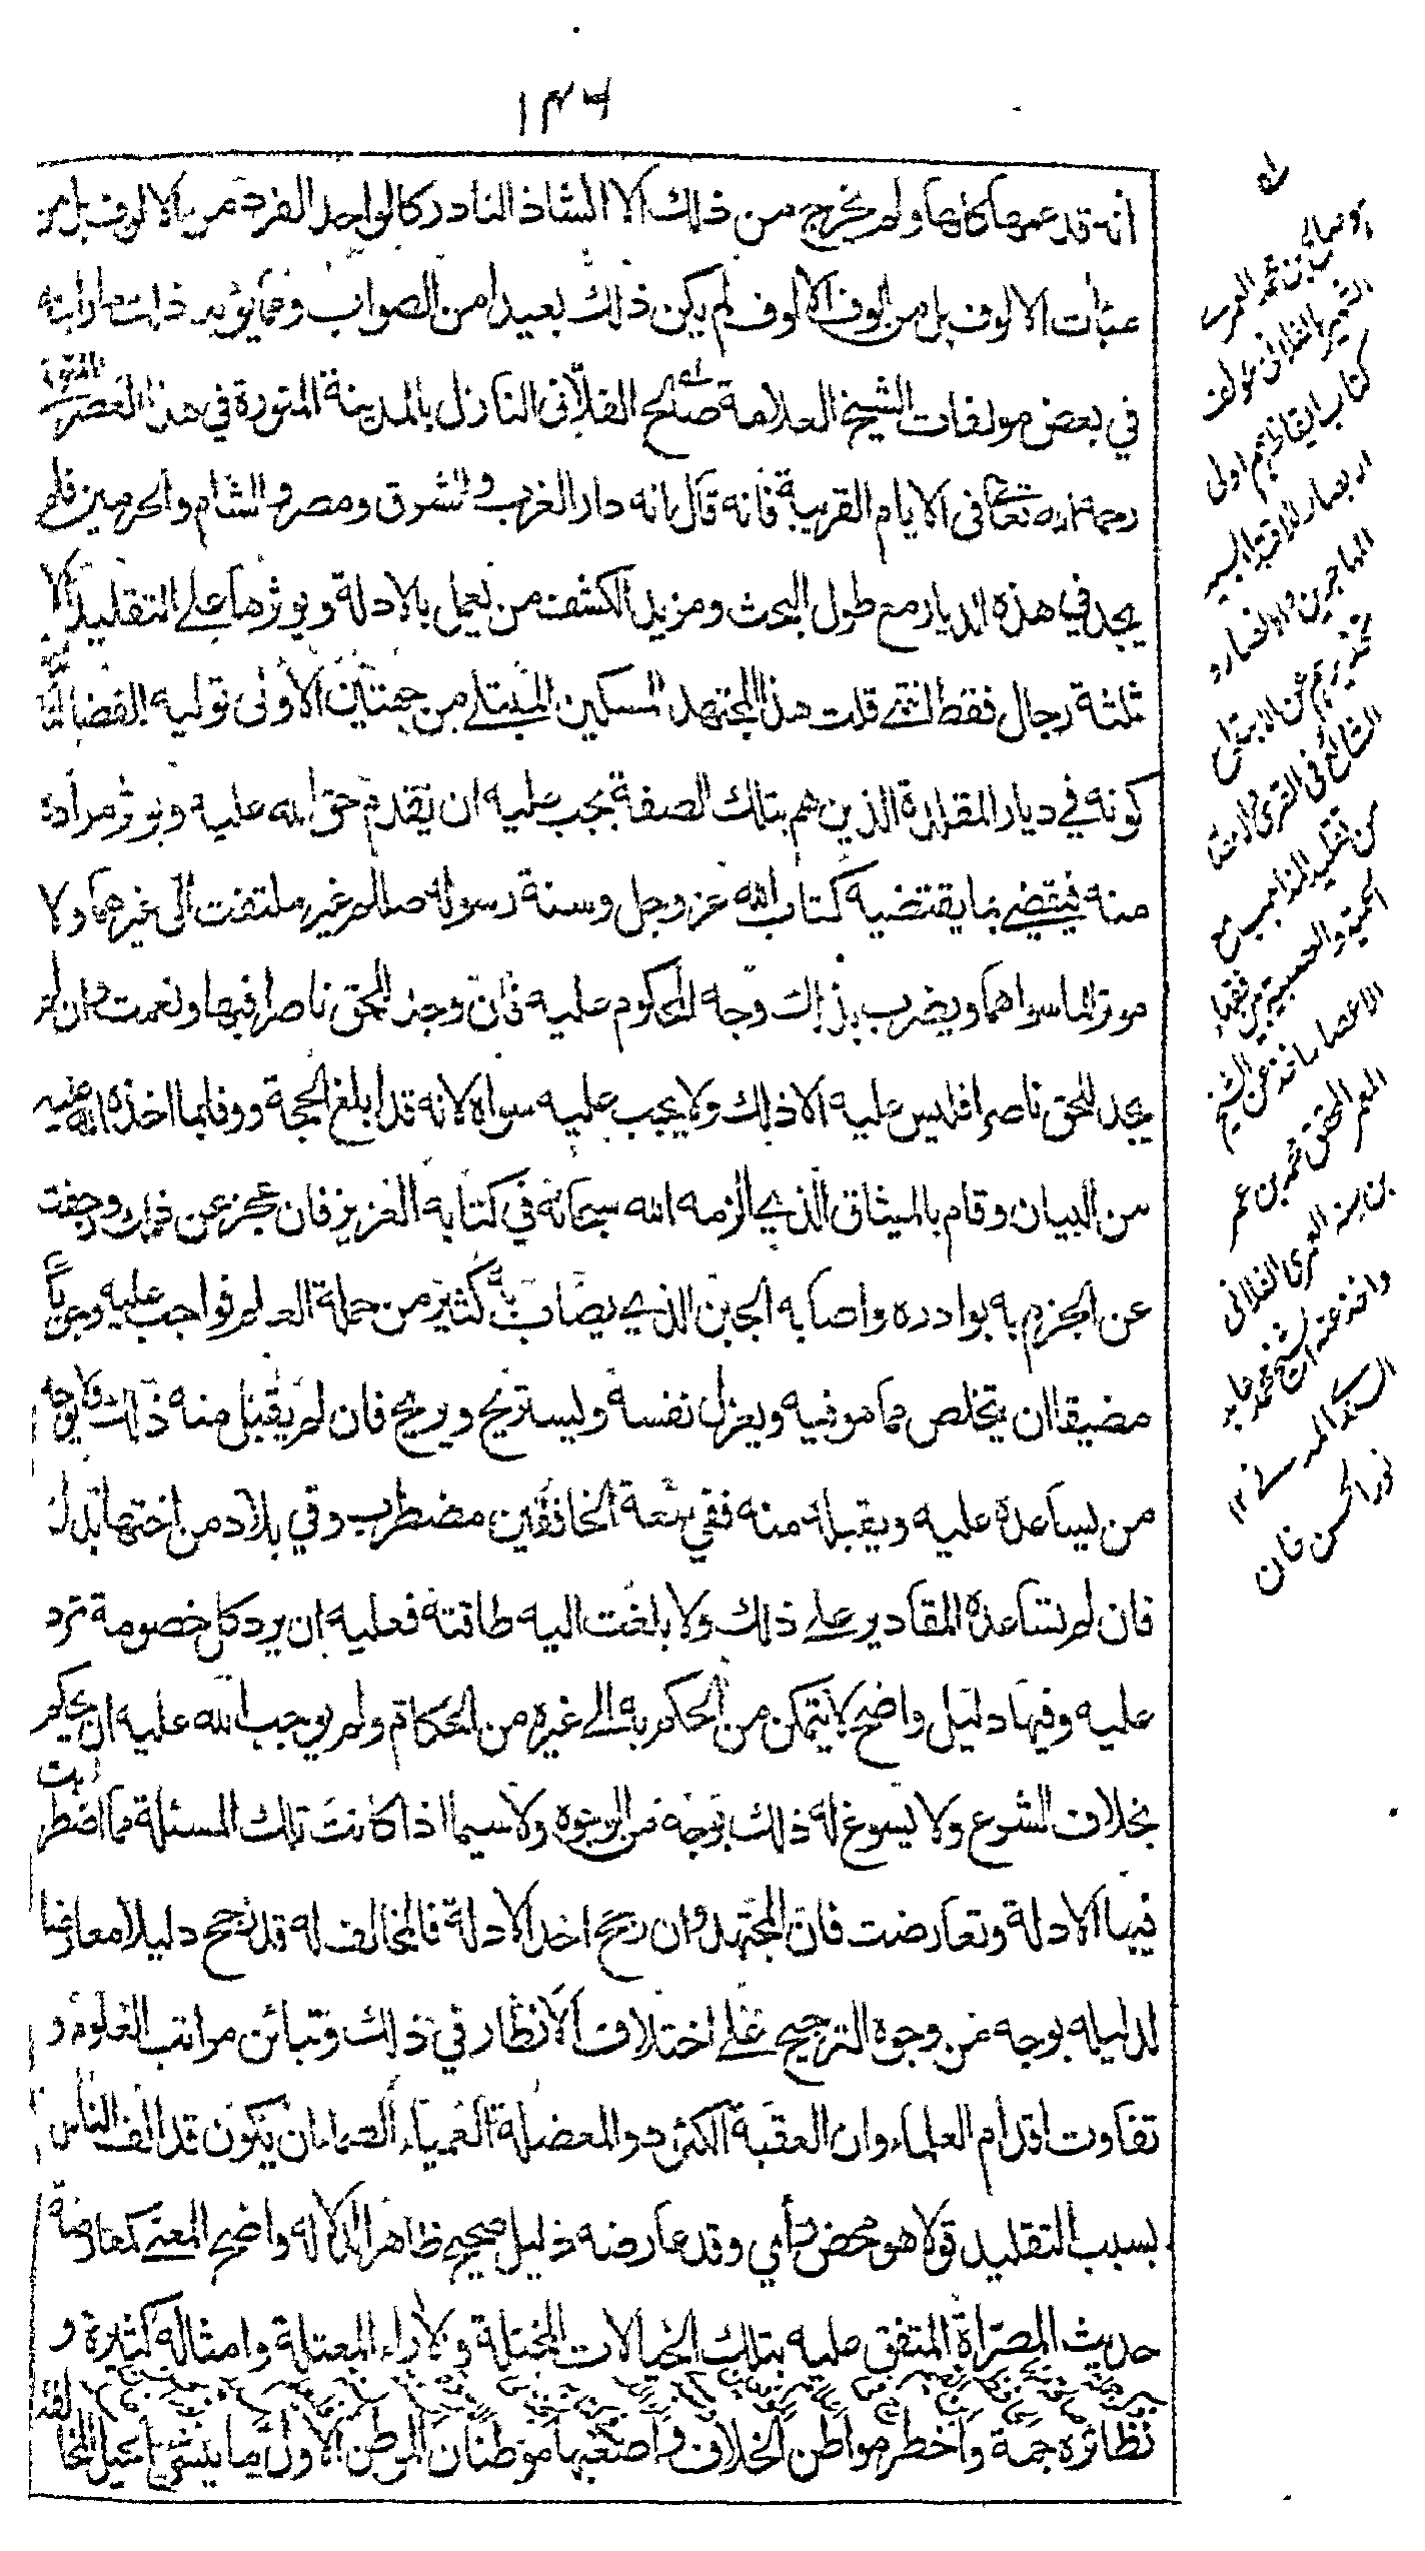 ١٣٦
انه قد عمها كلها ولم يخرج من ذلك الا الشاذ النادر كالواحد الفرد من الالوف بل من
مئات الالوف بل من الوف الالوف لم يكن ذلك بعيدا من الصواب ومما يؤيد ذلك ما رايته
في بعض مولفات الشيخ العلامة صالح الفلّاني النازل بالمدينة المنورة في هذا العصر المتوفى
رحمه الله تعالى في الايام القريبة فانه قال انه دار الغرب والشرق ومصر والشام والحرمين فلم
يجد في هذه الديار مع طول البحث ومزيد الكشف من يعمل بالادلة ويوثرها على التقليد الا
ثلثة رجال فقط انتهى قلت هذا المجتهد المسكين المبتلى من جهتين الاولى توليه القضا الثانية
كونه في ديار المقلدة الذين هم بتلك الصفة يجب عليه ان يقدم حق الله عليه ويوثر مراده
منه فيقضي بما يقتضيه كتاب الله عز وجل وسنة رسوله صللم غير ملتفت الى غيرهما ولا
موثر لما سواهما ويضرب بذلك وجه المحكوم عليه فان وجد الحق ناصرا فبها ونعمت وان لم
يجد للحق ناصرا فليس عليه الا ذلك ولا يجب عليه سواه لانه قد ابلغ الحجة ووفا بما اخذه الله عليه
من البيان وقام بالميثاق الذي الزمه الله سبحانه في كتابه العزيز فان عجز عن ذلك ورجفت
عن الجزم به بوادره واصابه الجبن الذي يصاب به كثير من حملة العلم فواجب عليه وجوبا
مضيقا ان يتخلص مما هو فيه ويعزل نفسه وليستريح ويريح فان لم يقبل منه ذلك ولا وجد
من يساعده عليه ويقبله منه ففي سعة الخافقين مضطرب وفي بلاد من اختها بدل
فان لم تساعده المقادير على ذلك ولا بلغت اليه طاقته فعليه ان يرد كل خصومة ترد
عليه وفيها دليل واضح لا يتمكن من الحكم به الى غيره من الحكام ولم يوجب الله عليه ان يحكم
بخلاف الشرع ولا يسوغ له ذلك بوجه من الوجوه ولا سيما اذا كانت تلك المسئلة مما اضطربت
فيها الادلة وتعارضت فان المجتهد وان رجح احد الادلة فالمخالف له قد رجح دليلا معارضا
لدليله بوجه من وجوه الترجيح على اختلاف الانظار في ذلك وتبائن مراتب العلوم و
تفاوت اقدام العلماء وان العقبة الكئود والمعضلة العمياء الصماء ان يكون قد الف الناس
بسبب التقليد قولا هو محض راي وقد عارضه دليل صحيح ظاهر الدلالة واضح المعنى كمعارضة
حديث المصرّاة المتفق عليه بتلك الخيالات المختلة والاراء المعتلة وامثاله كثيرة و
نظائره جمة واخطر مواطن الخلاف واصعبها موطنان الموطن الاول ما
كتاب ايقاظ همم اولى
المهاجرين والانصار و
تحذيرهم عن الابتداع
الشائع في القرى والامصار
من تقليد المذاهب مع
الحمية والعصبية بين فقهاء
الاعصار اخذ عن الشيخ
المعمر المحقق محمد بن
بن سنه العمرى الفلاني
واخذ عنه الشيخ محمد عابد
نور الحسن خان